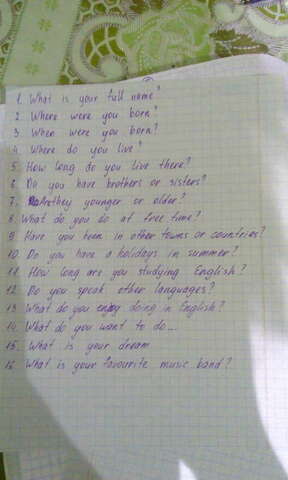 1. What is your full name?
2. Where were you born?
3. When were you born?
4. Where do you live?
5. How long do you live there?
6. Do you have brothers or sisters?
7. Are they younger or older?
8. What do you do at free time?
9. Have you been in other towns or countries?
10. Do you have a holidays in summer?
11. How long are you studying English?
12. Do you speak other languages?
13. What do you enjoy doing in English?
14. What do you want to do...
15. What is your dream
16. What is your favourite music band?